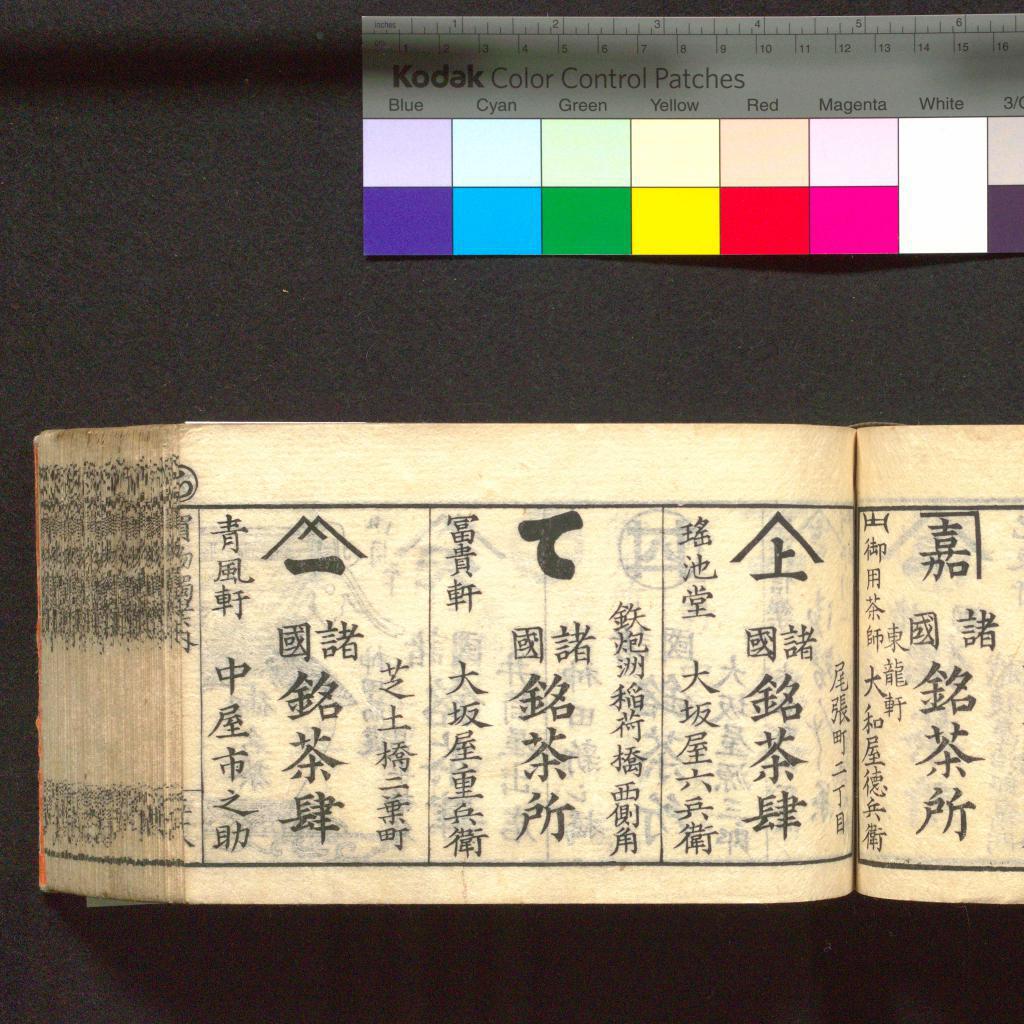 inches 1 2 3 4 5 6
1 2 3 4 5 6 7 8 9 10 11 12 13 14 15 16
Kodak Color Control Patches
Blue Cyan Green Yellow Red Magenta White
嘉
諸國
銘茶所
御用茶師
東龍軒
大和屋徳兵衛
尾張町二丁目
上
諸國
銘茶肆
瑤池堂
大坂屋六兵衛
鉄炮洲稲荷橋西側角
て
諸國
銘茶所
冨貴軒
大坂屋重兵衛
芝土橋二葉町
一
諸國
銘茶肆
青風軒
中屋市之助